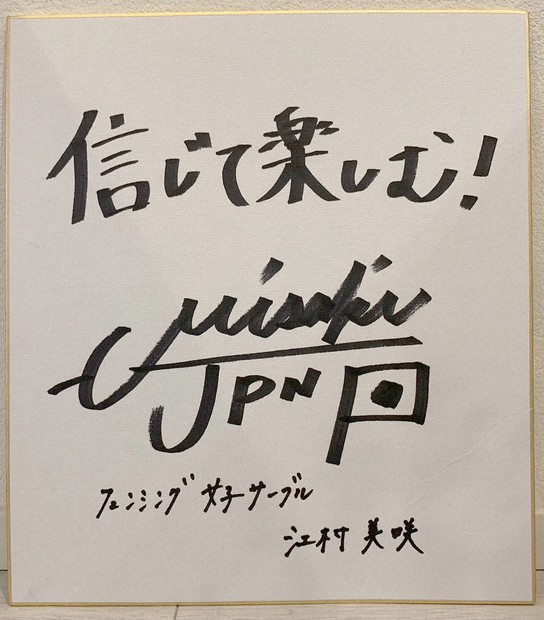 信じて楽しむ!
misaki
JPN
フェンシング 女子サーブル
江村 美咲